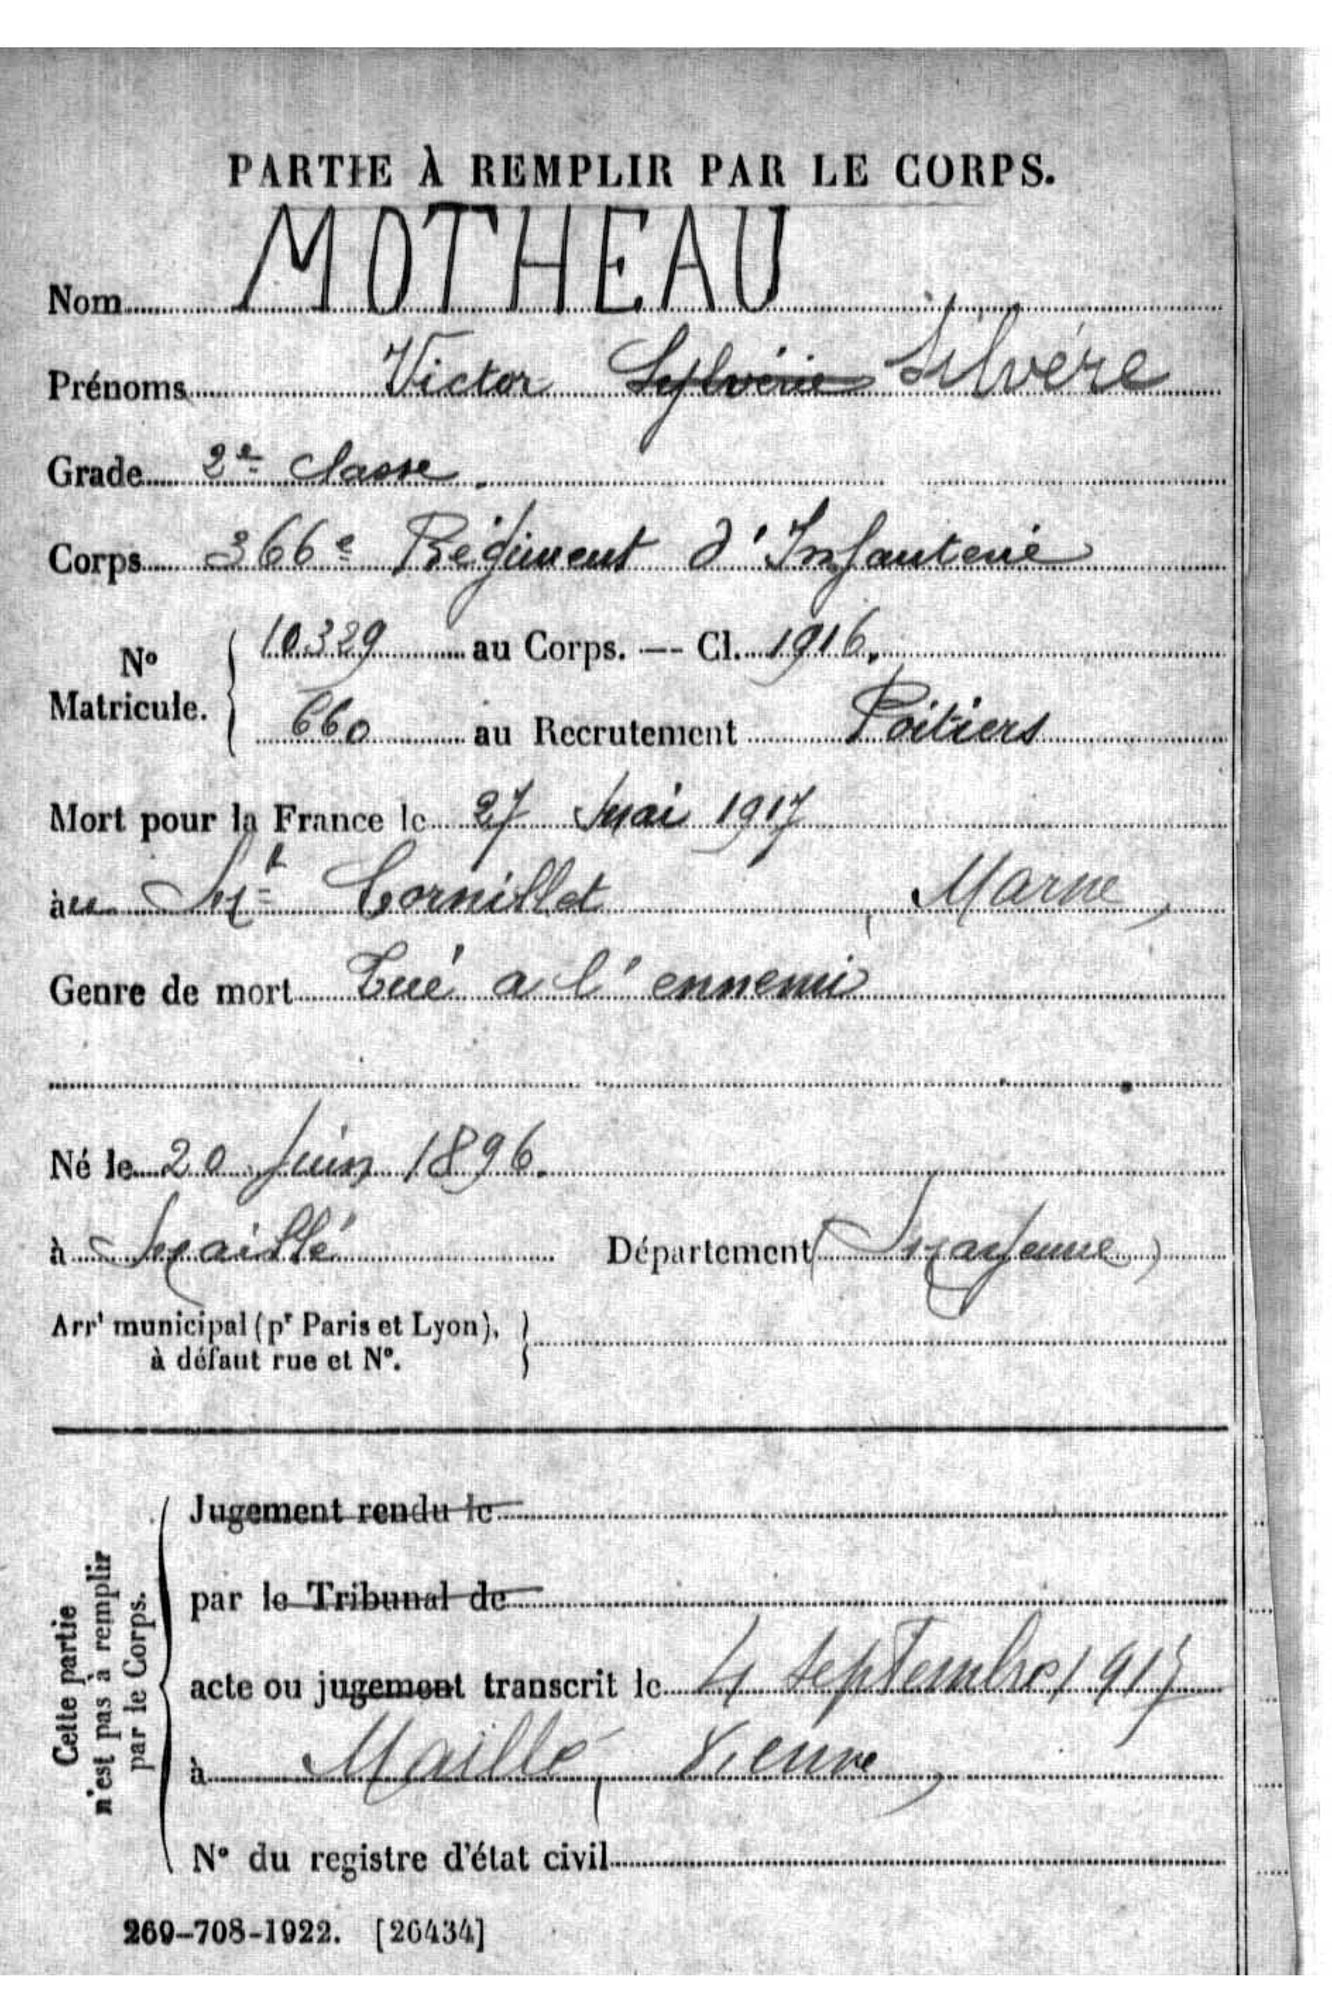 PARTIE À REMPLIR PAR LE CORPS.
Nom MOTHEAU
Prénoms Victor Sylvérie Silvére
Grade 2e classe.
Corps 366e Régiment d'Infanterie
No Matricule. 10329 au Corps. — Cl. 1916.
660 au Recrutement Poitiers
Mort pour la France le 27 Mai 1917
àu Mt Cornillet, Marne,
Genre de mort Tué a l'ennemi
Né le 20 Juin 1896.
à Maillé Département (Mayenne)
Arrt municipal (pr Paris et Lyon),
à défaut rue et No.
Cette partie
n'est pas à remplir
par le Corps.
Jugement rendu le
par le Tribunal de
acte ou jugement transcrit le 4 septembre 1917
à Maillé, Vienne,
No du registre d'état civil
269-708-1922. [26434]